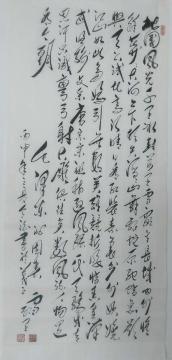 北国风光千里冰封万里雪飘望长城内外惟
馀莽莽大河上下顿失滔滔山舞银蛇原驰蜡象欲
与天公试比高须晴日看红装素裹分外妖娆
江山如此多娇引无数英雄竞折腰惜秦皇汉
武略输文采唐宗宋祖稍逊风骚一代天骄成吉
思汗只识弯弓射大雕俱往矣数风流人物还
看今朝
毛泽东沁园春雪
丙申年